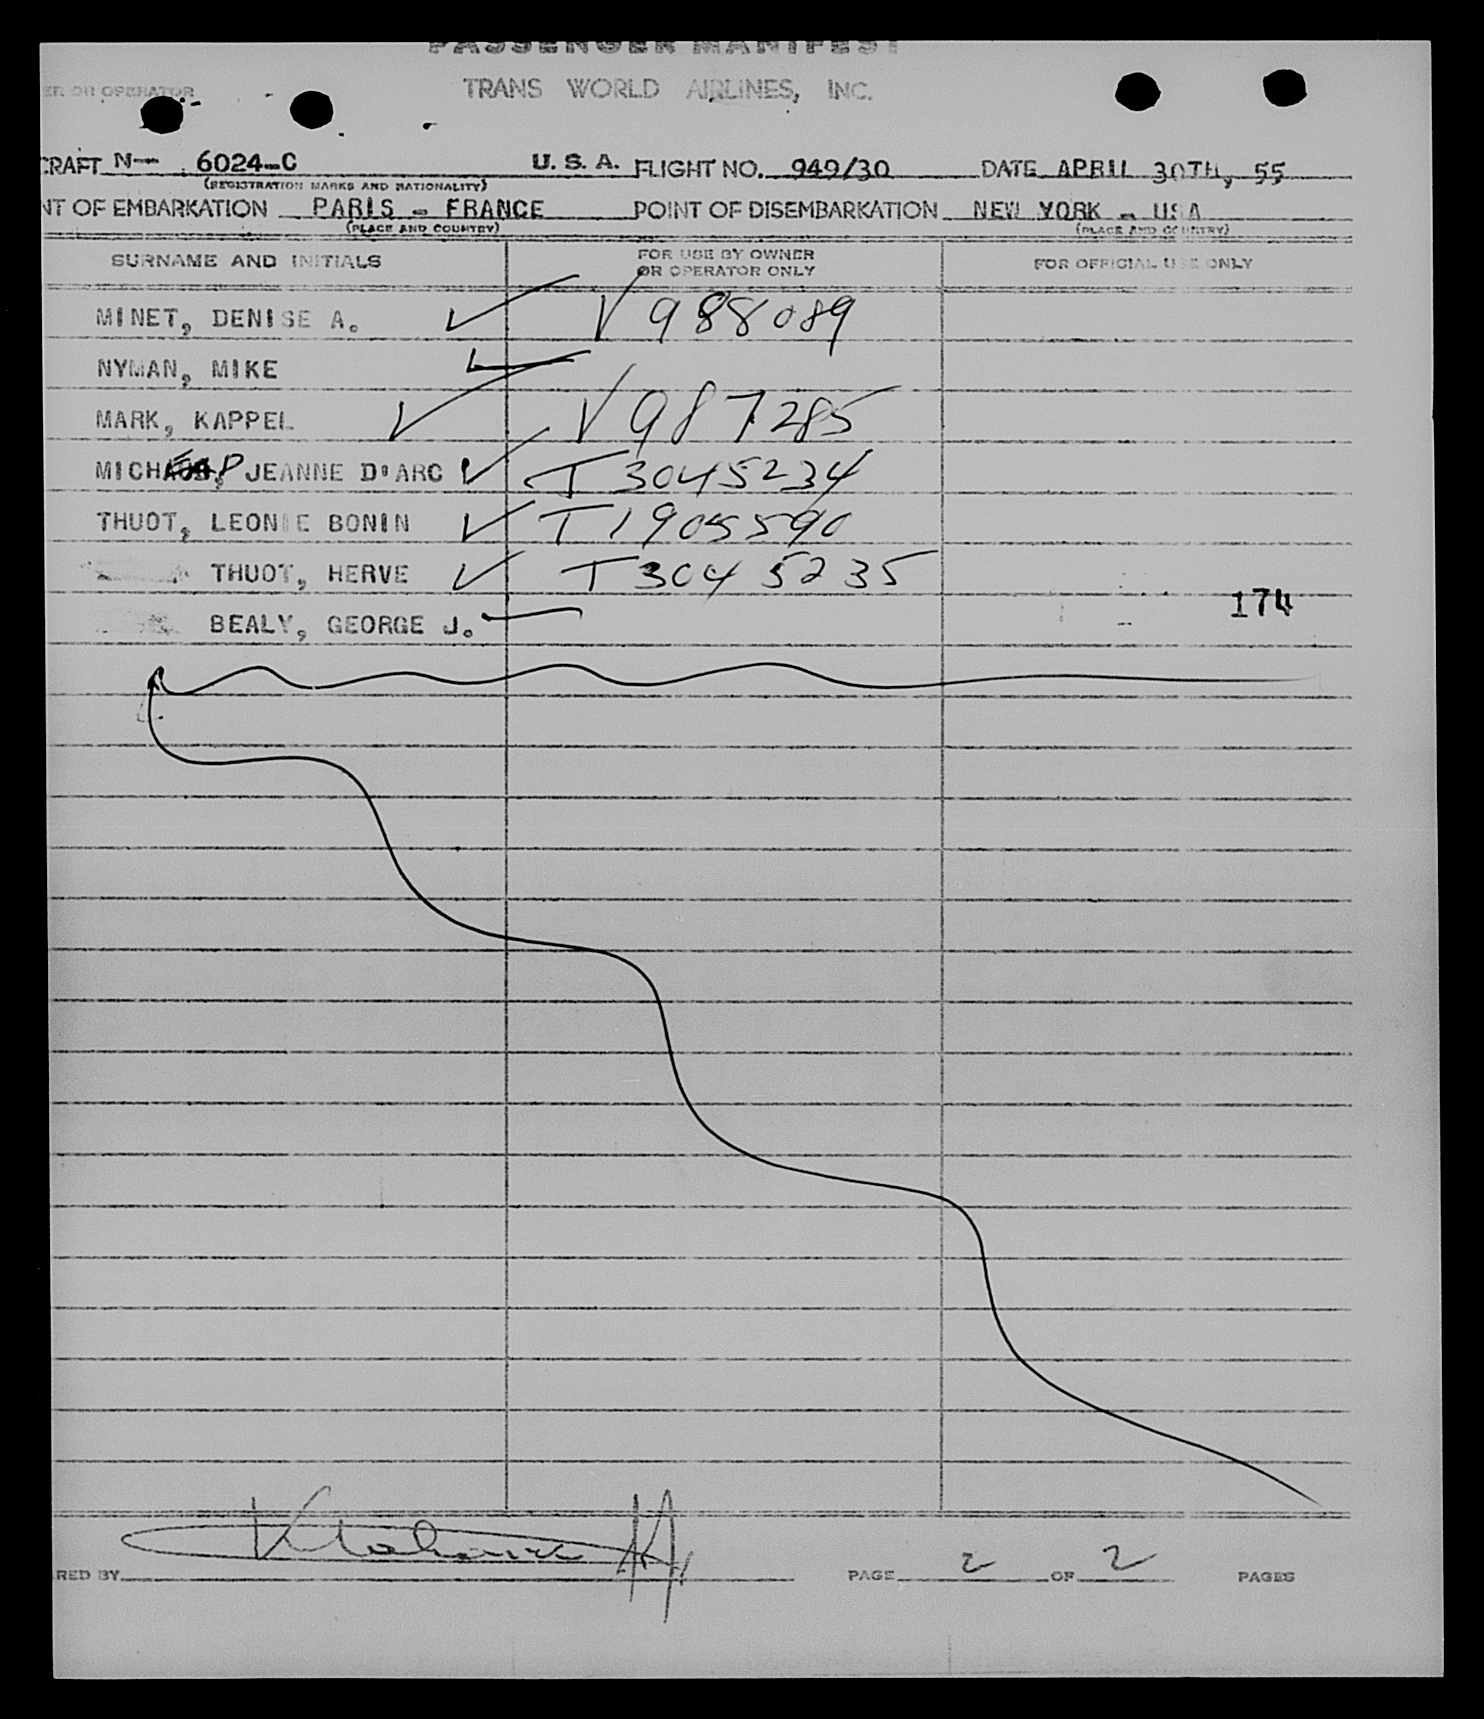 PASSENGER MANIFEST
ER OR OPERATOR TRANS WORLD AIRLINES, INC.
CRAFT N- 6024-C U. S. A. FLIGHT NO. 949/30 DATE APRIL 30TH, 55
(REGISTRATION MARKS AND NATIONALITY)
NT OF EMBARKATION PARIS - FRANCE POINT OF DISEMBARKATION NEW YORK - USA
(PLACE AND COUNTRY) (PLACE AND COUNTRY)
SURNAME AND INITIALS FOR USE BY OWNER OR OPERATOR ONLY FOR OFFICIAL USE ONLY
MINET, DENISE A. V 988089
NYMAN, MIKE
MARK, KAPPEL V 987285
MICHAUD, JEANNE D'ARC T 3045234
THUOT, LEONIE BONIN T 1905590
THUOT, HERVE T 3045235
174
BEALY, GEORGE J.
RED BY PAGE 2 OF 2 PAGES